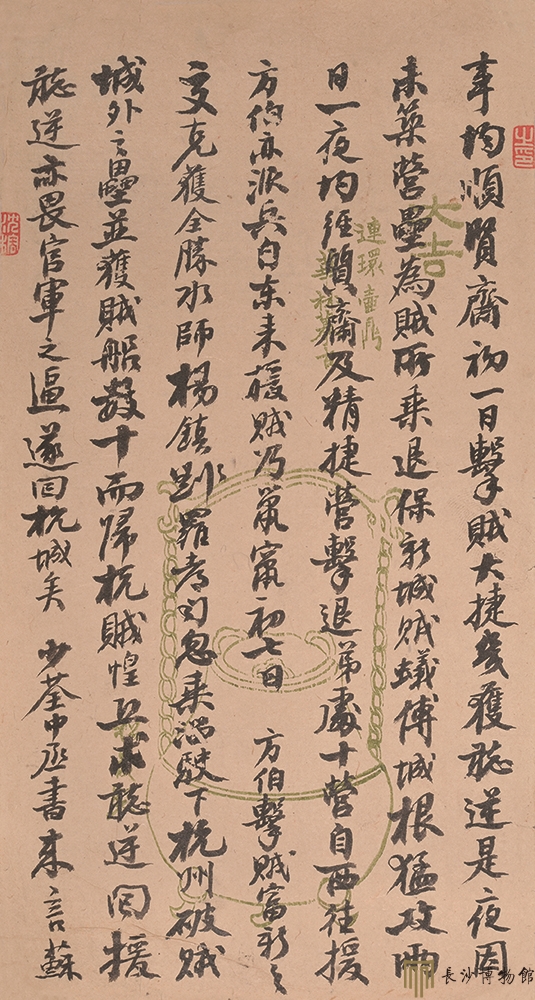 事均順賢齋初一日擊賊大捷幾獲聽逆是夜因
未築營壘為賊所乘退保新城賊蟻傅城根猛攻兩
日一夜均經賢齋及精捷營擊退弟處十營自西往援
方伯亦派兵自東來援賊乃鼠竄初七日 方伯擊賊富新之
交克獲全勝水師楊鎮劉羅忽乘潮駛下杭州破賊
城外之壘並獲賊船數十而歸杭賊惶求聽逆回援
聽逆亦畏官軍之逼遂回杭城矣 少荃中丞書來言蘇
大吉
連環壺
長沙博物館